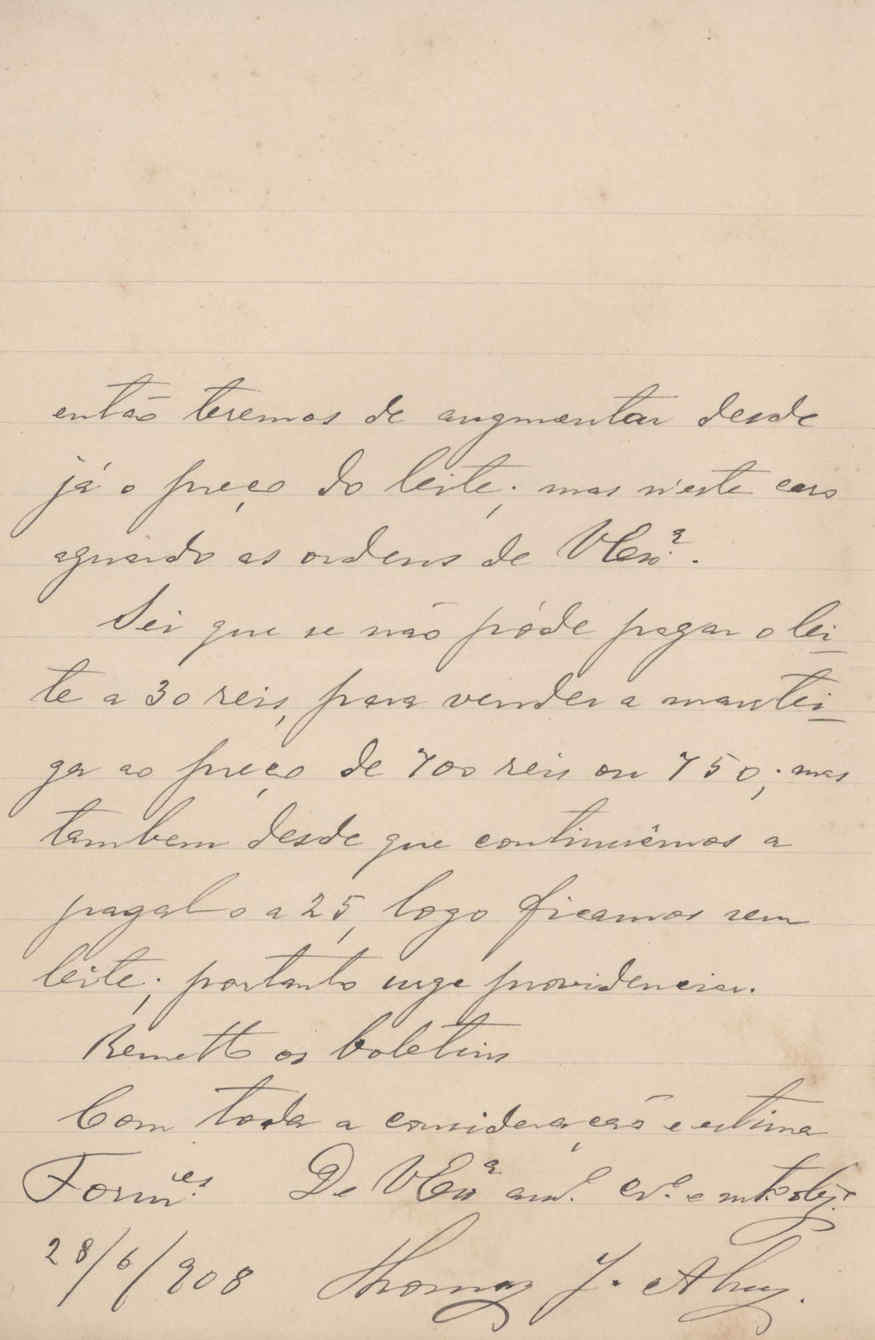 então teremos de augmentar desde
já o preço do leite; mas n'este caso
aguardo as ordens de V Exª.
Sei que se não póde pagar o lei-
te a 30 reis, para vender a mantei-
ga ao preço de 700 reis ou 750; mas
tambem desde que continuêmos a
pagal-o a 25, logo ficamos sem
leite; portanto urge providenciar.
Remetto os boletins
Com toda a consideração e estima
De V Exª amº. crº. e mtº obgº
28/6/908 Thomaz J. Alves.